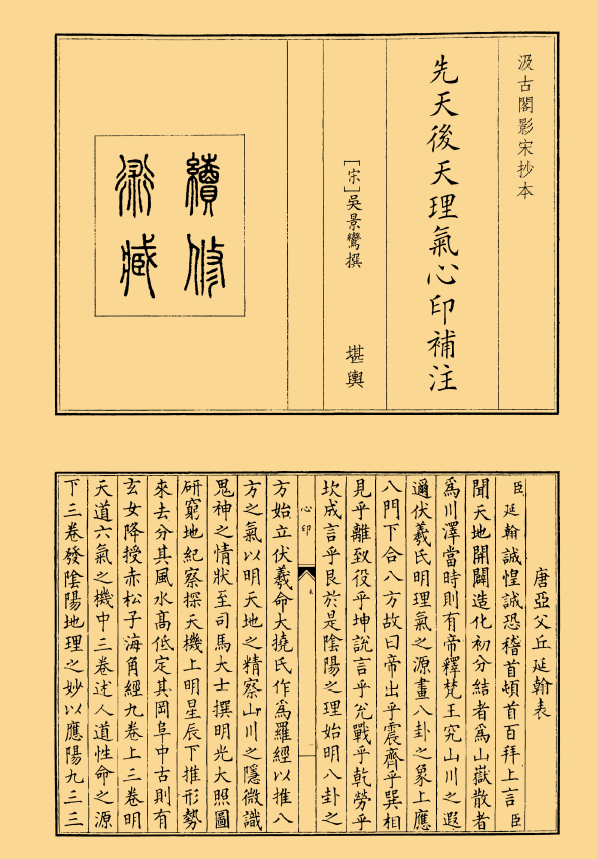 汲古閣影宋抄本
先天後天理氣心印補注
[宋]吳景鸞撰
堪輿
續修
術藏
唐亞父丘延翰表
臣延翰誠惶誠恐稽首頓首百拜上言臣
聞天地開闢造化初分結者爲山嶽散者
爲川澤當時則有帝釋梵王究山川之遐
邇伏羲氏明理氣之源畫八卦之象上應
八門下合八方故曰帝出乎震齊乎巽相
見乎離致役乎坤說言乎兌戰乎乾勞乎
坎成言乎艮於是陰陽之理始明八卦之
心印
方始立伏羲命大撓氏作爲羅經以推八
方之氣以明天地之精察山川之隱微識
鬼神之情狀至司馬大士撰明光大照圖
研窮地紀察探天機上明星辰下推形勢
來去分其風水高低定其岡阜中古則有
玄女降授赤松子海角經九卷上三卷明
天道六氣之機中三卷述人道性命之源
下三卷發陰陽地理之妙以應陽九三三